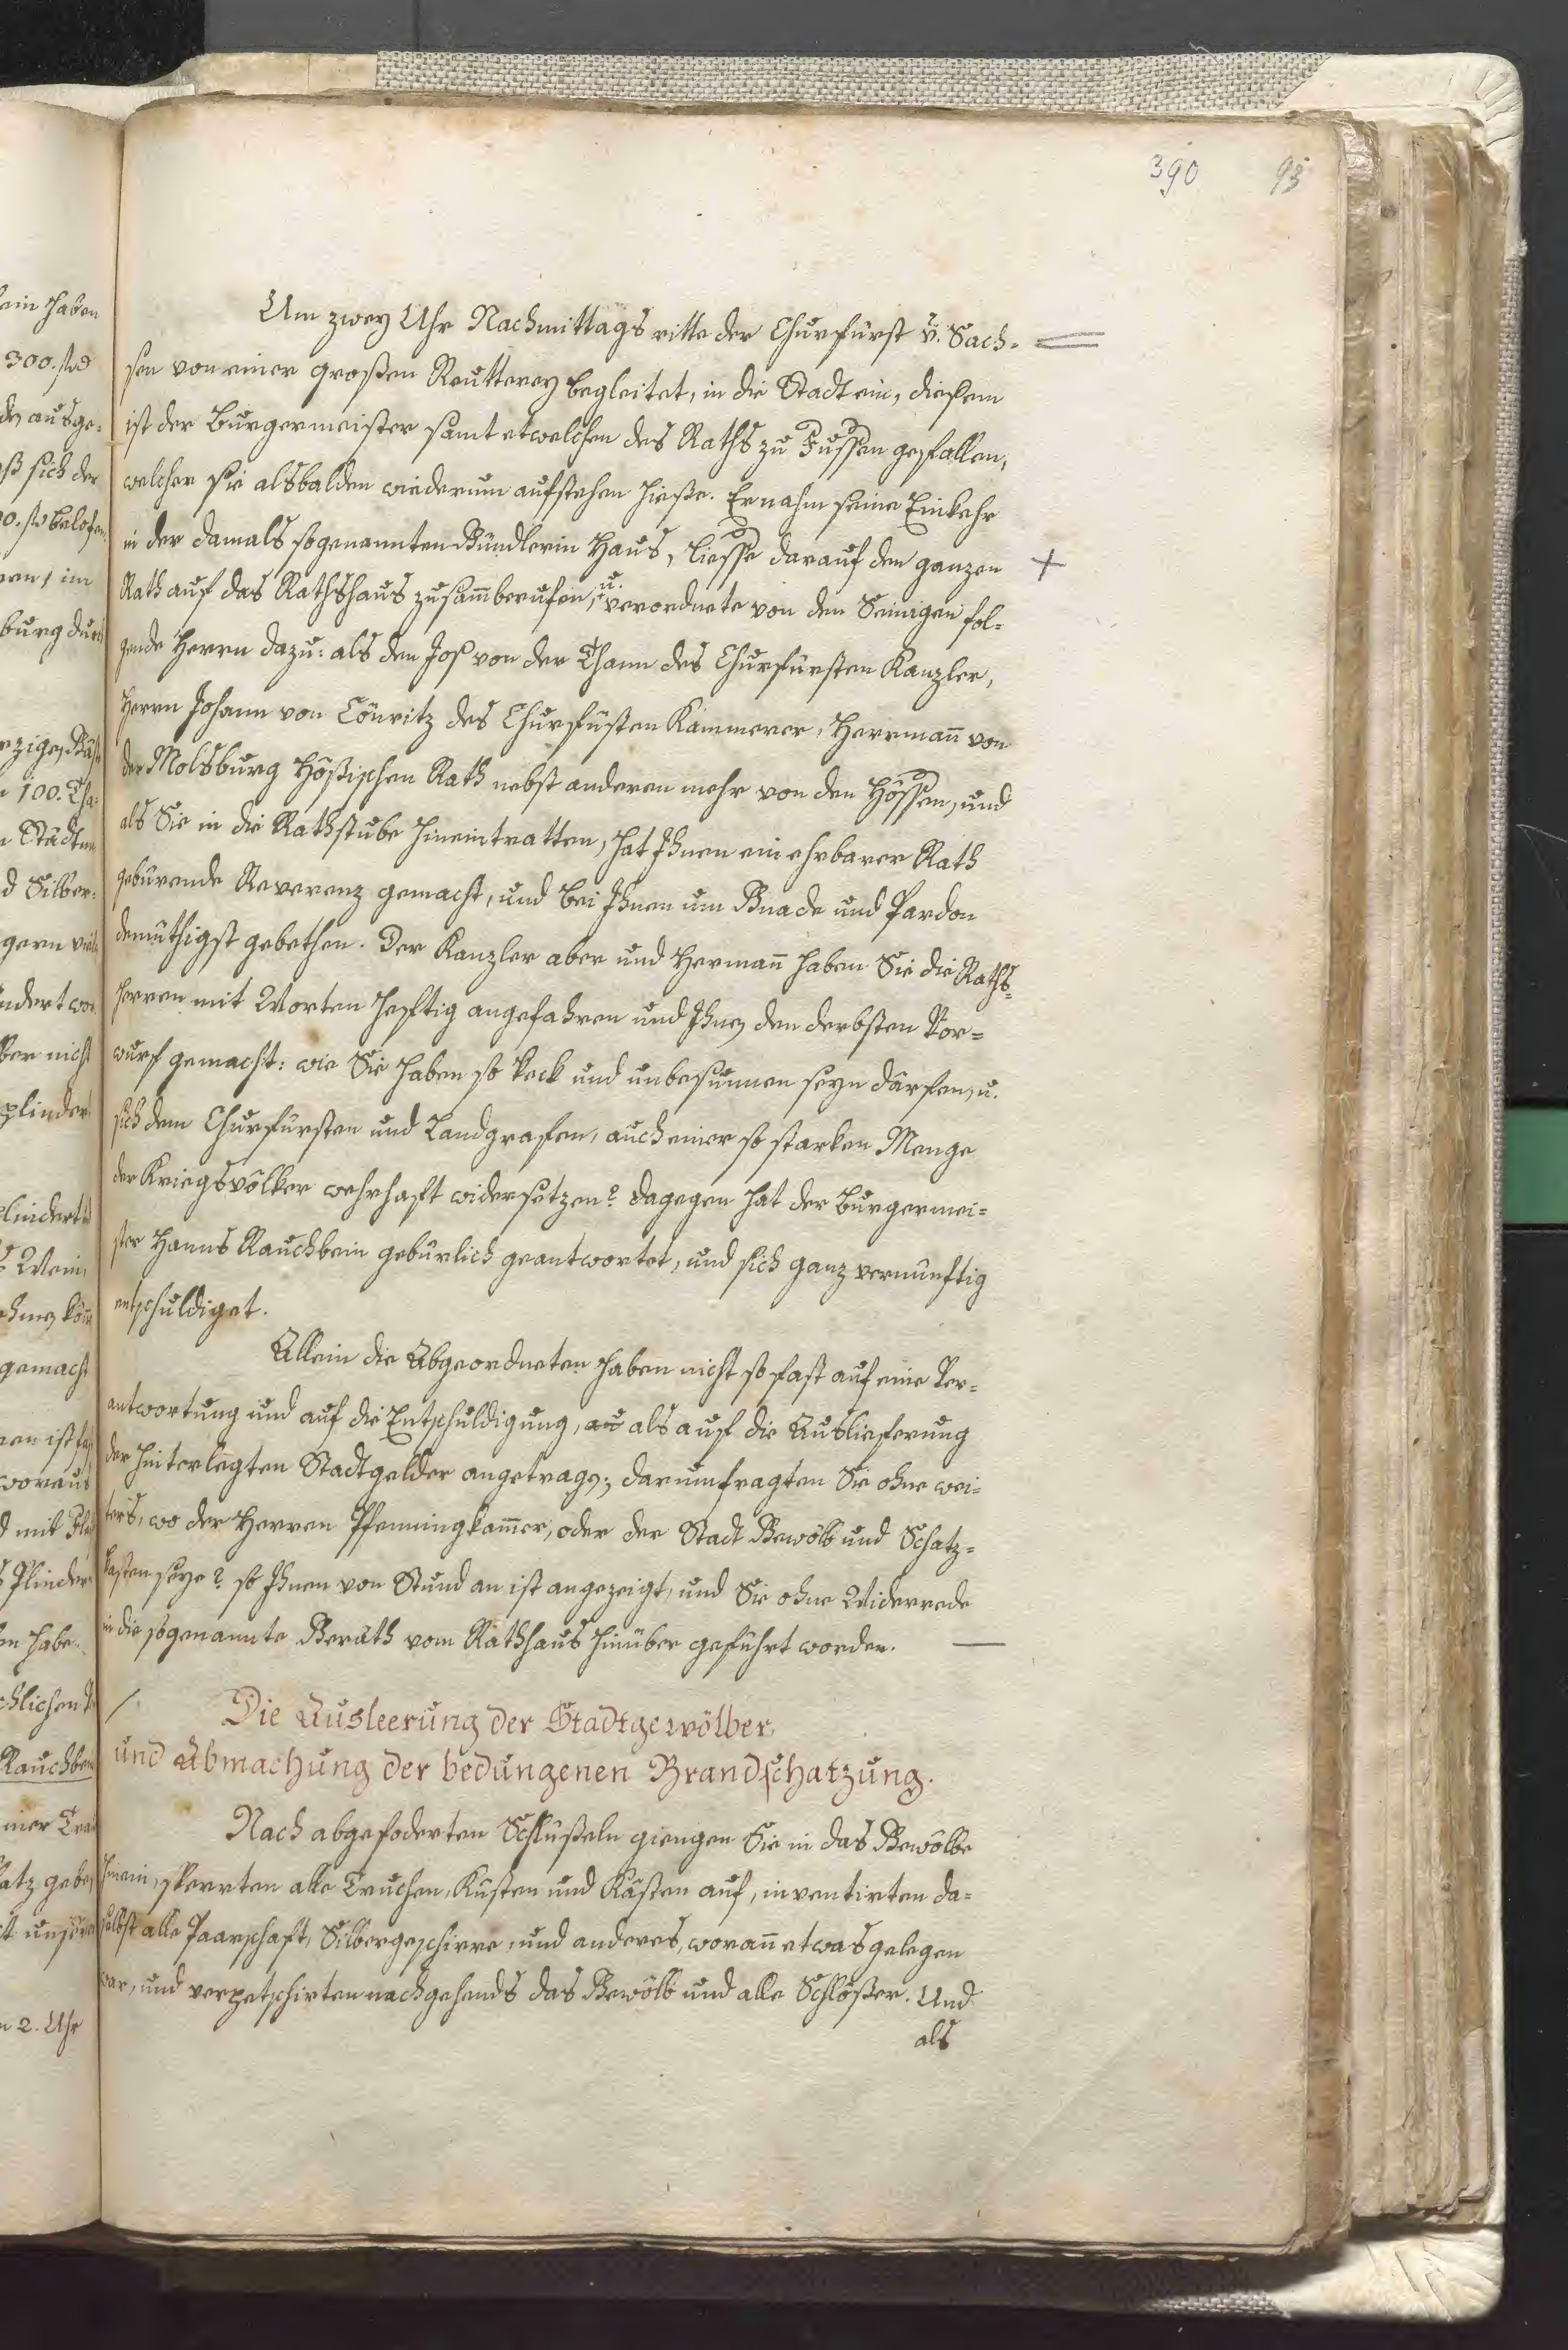 390 93
Um zwey Uhr Nachmittags ritte der Churfürst v. Sach-
sen von einer großen Reutterey begleitet, in die Stadt ein, diesem
ist der Burgermeister samt etwelchen des Raths zu Fussen gefallen,
welcher sie alsbalden wiederum aufstehen hieße. Er nahm seine Einkehr
in der damals sogenannten Bündlerin Haus, liesse darauf den ganzen
Rath auf das Rathshaus zusam̄berufen, u. verordnete von den Seinigen fol-
gende Herrn dazu: als den Jos von der Thann des Churfürsten Kanzler,
Herrn Johann von Cönritz des Churfüsten Kammerer, Herrman̄ von
der Molsburg Hößischen Rath nebst anderen mehr von den Hössen, und
als Sie in die Rathstube hineintratten, hat Ihnen ein ehrbarer Rath
gebürende Reverenz gemacht, und bei Ihnen um Gnade und Pardon
demüthigst gebethen. Der Kanzler aber und Herman̄ haben Sie die Raths-
herren mit Worten heftig angefahren und Ihnen den derbsten Vor-
wurf gemacht: wie Sie haben so keck und unbesunnen seyn därfen, u.
sich dem Churfürsten und Landgrafen, auch einer so starken Menge
der Kriegsvölker wehrhaft widersetzen? dagegen hat der Burgermei-
ster Hanns Rauchbein gebürlich geantwortet, und sich ganz vernünftig
entschuldiget.
Allein die Abgeordneten haben nicht so fast auf eine Ver-
antwortung und auf die Entschuldigung, als auf die Auslieferung
der hinterlegten Stadtgelder angetragen; darum fragten Sie ohne wei-
ters, wo der Herren Pfenningkam̄er, oder der Stadt Gewölb und Schatz-
kasten seye? so Ihnen von Stund an ist angezeigt, und Sie ohne Widerrede
in die sogenannte Geräth vom Rathhaus hinüber geführt worden.
Die Ausleerung der Stadtgewölber,
und Abmachung der bedungenen Brandschatzung.
Nach abgefoderten Schlüßeln giengen Sie in das Gewölbe
hinein, sperrten alle Truchen, Kusten und Kästen auf, inventirten da-
selbst alle Paarschaft, Silbergeschirre, und anderes, woran̄ etwas gelegen
war, und verpetschirten nachgehends das Gewölb und alle Schlößer. Und
als